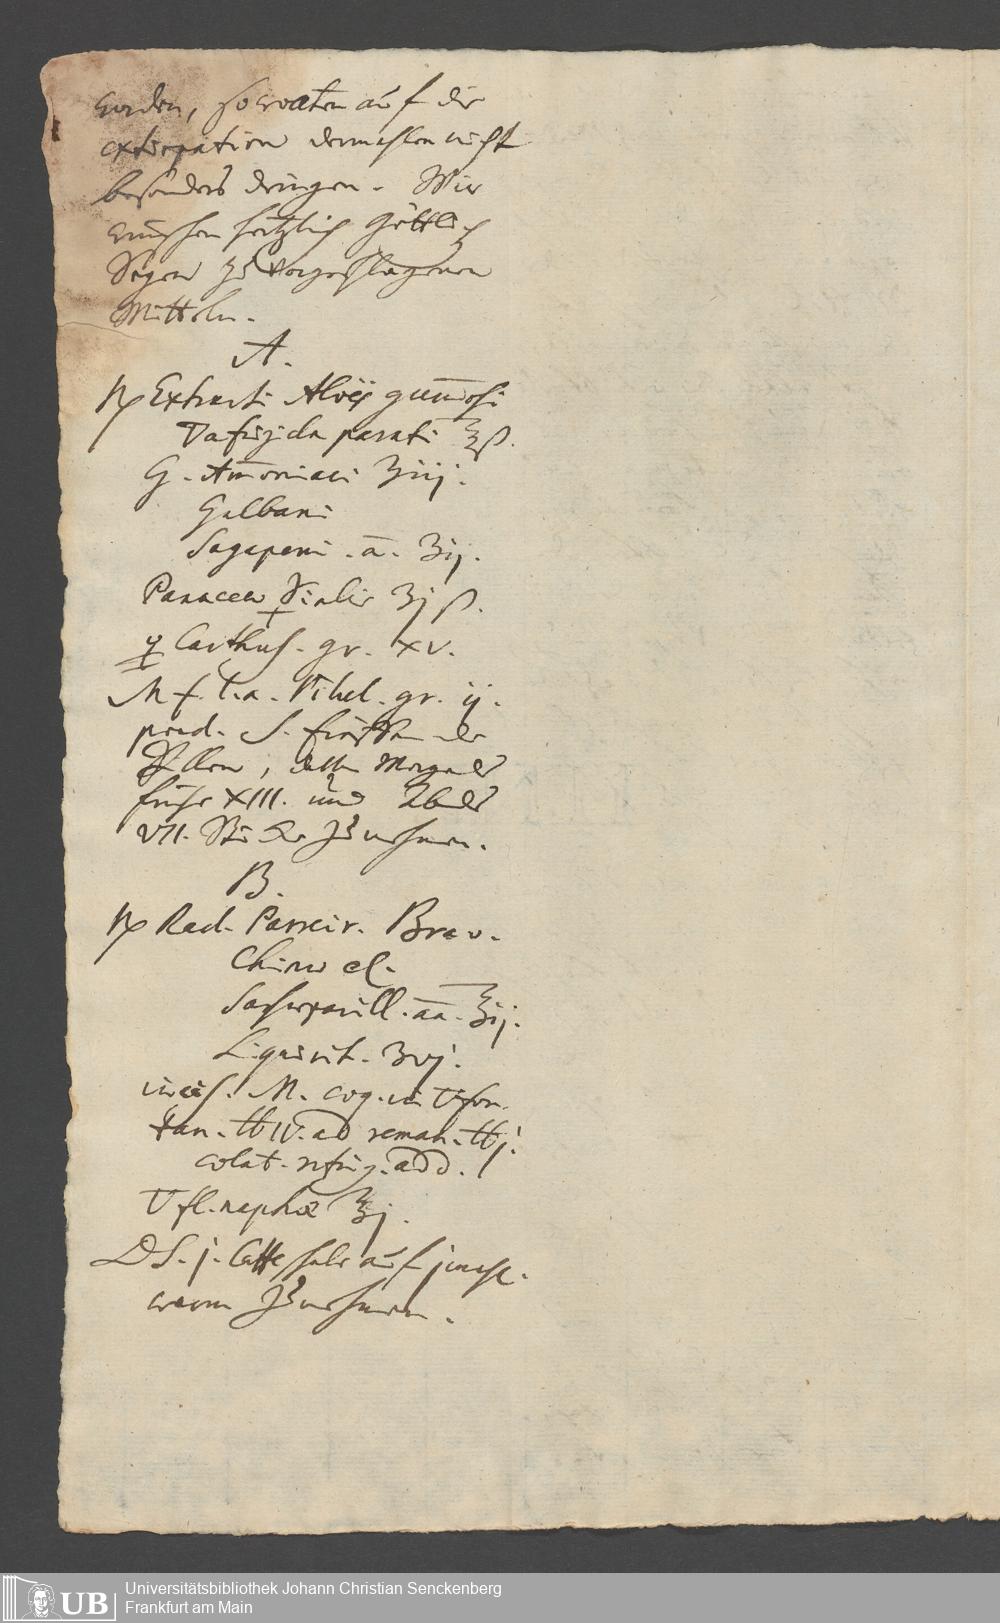 worden, so wolten auf die
extirpation dermahlen nicht
besonders dringen. Wir
wünschen hertzlich Göttlich
Segen zu vorgeschlagenen
Mitteln.
A.
℞ Extracti Aloes gum̄osi
▽a frigida parati ℥ß.
G. Am̄oniaci ʒiij.
Galbani
Sagapeni. a̅. ʒij.
Panaceæ ☿ialis ʒjß.
Carthus. gr. XV.
M. f. l. a. Pilul. gr. ij.
pond. S.
Pillen, Morgends
frühe XIII. und Abends
VII. Stücke zu nehmen.
B.
℞ Rad. Pareir. Brav.
Chinæ el.
Sassaparill. a̅a̅. ℥ij.
Liquirit. ʒvj.
incis. M. coq. in ▽ fon-
tan. ℔IV. ad reman. ℔j.
colat. refrig. add.
▽ fl. naphæ ℥j.
DS. j. Caffe schale auf jmahl.
warm zu nehmen.
UB
Universitätsbibliothek Johann Christian Senckenberg
Frankfurt am Main